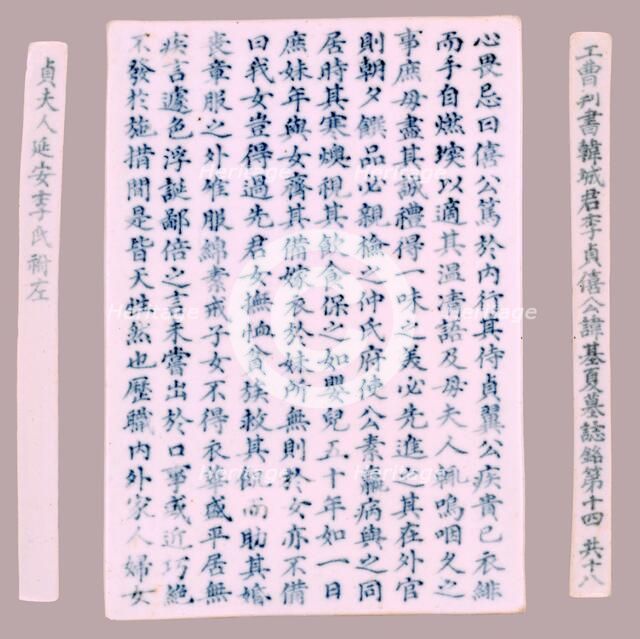 工曹判書韓城君李貞僖公諱基夏墓誌銘第十四 共十八
心畏忌曰僖公篤於內行其侍貞翼公疾貴已衣緋
而手自燃埃以適其溫凊語及母夫人輒嗚咽久之
事庶母盡其誠禮得一味之美必先進 其在外官
則朝夕饌品必親檢之仲氏府使公素羸病與之同
居時其寒燠視其飮食保之如嬰兒五十年如一日
庶妹年與女齊其備嫁衣於妹所無則於女亦不備
曰我女豈得過先君女撫恤貧族救其 而助其婚
喪章服之外唯服綿素戒子女不得衣華盛平居無
疾言遽色浮誕鄙倍之言未嘗出於口事或近巧絶
不發於施措間是皆天性然也歷職內外家人婦女
貞夫人延安李氏祔左
Heritage
Heritage
Heritage
Heritage
Heritage
Heritage